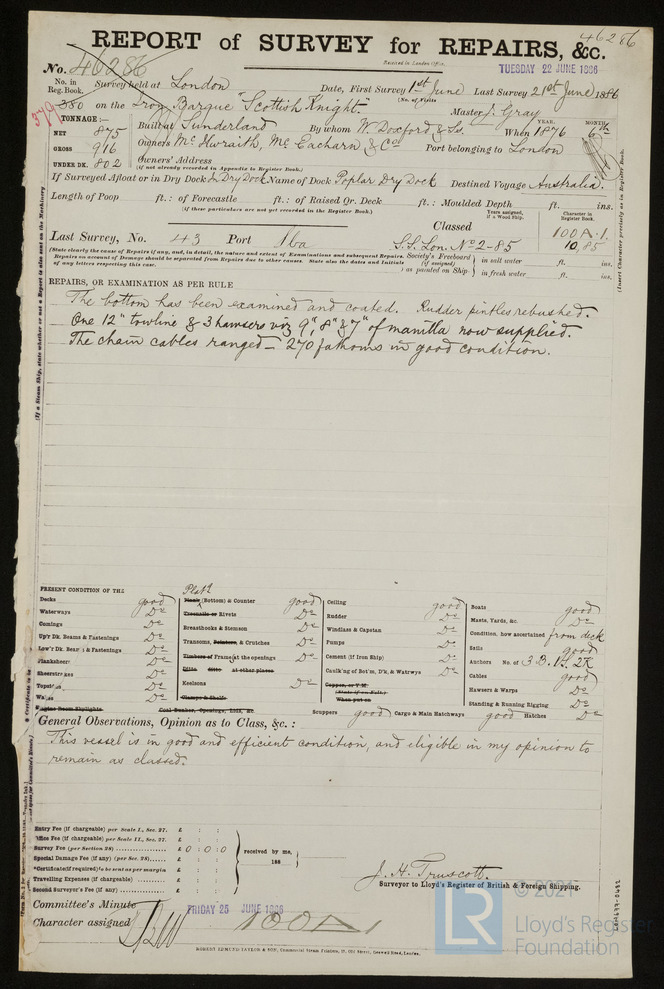 46286
REPORT of SURVEY for REPAIRS, &c.
Received in London Office,
No. 46286
TUESDAY 22 JUNE 1886
No. in Reg. Book.
Survey held at London
Date, First Survey 1st June Last Survey 21st June 1886
(No. of Visits
379 380 on the Iron Barque "Scottish Knight."
Master J. Gray
TONNAGE:—
NET 875
GROSS 916
UNDER DK. 802
Built at Sunderland By whom W. Doxford & Ss. When 1876
YEAR. MONTH.
6th
Owners Mc Ilwraith, Mc Eacharn & Co Port belonging to London
Owners' Address
(if not already recorded in Appendix to Register Book.)
If Surveyed Afloat or in Dry Dock In Dry Dock Name of Dock Poplar Dry Dock Destined Voyage Australia.
Length of Poop ft.: of Forecastle ft.: of Raised Qr. Deck ft.: Moulded Depth ft. ins.
(if these particulars are not yet recorded in the Register Book.)
Years assigned, if a Wood Ship.
Character in Register Book.
Classed
100 A. 1.
10,85
Last Survey, No. 43 Port
S.S. Lon. No 2-85
(State clearly the cause of Repairs if any, and, in detail, the nature and extent of Examinations and subsequent Repairs.
Repairs on account of Damage should be separated from Repairs due to other causes. State also the dates and Initials
of any letters respecting this case.
Society's Freeboard (if assigned) as painted on Ship
in salt water ft. ins.
in fresh water ft. ins.
REPAIRS, OR EXAMINATION AS PER RULE
The bottom has been examined and coated. Rudder pintles rebushed.
One 12" towline & 3 hawsers viz 9", 8" & 7" of manilla now supplied.
The chain cables ranged — 270 fathoms in good condition.
PRESENT CONDITION OF THE
Decks good
Waterways Do
Comings Do
Upr Dk. Beams & Fastenings Do
Low'r Dk. Beams & Fastenings Do
Planksheer Do
Sheerstrakes Do
Topsides Do
Wales Do
Engine Room Skylights
Plate
Plank (Bottom) & Counter good
Treenails or Rivets Do
Breasthooks & Stemson Do
Transoms, Pointers, & Crutches Do
Timbers of Frames at the openings Do
Ditto ditto at other places
Keelsons Do
Clamps & Shelfs
Coal Bunker, Openings, Lids, &c.
Ceiling good
Rudder Do
Windlass & Capstan Do
Pumps Do
Cement (if Iron Ship) Do
Caulk'ng of Bot'm, D'ks, & Watrwys Do
Copper, or Y.M.
(State if on Felt)
When put on
Scuppers good Cargo & Main Hatchways good Hatches Do
Boats good
Masts, Yards, &c. Do
Condition, how ascertained from deck
Sails good
Anchors No. of 3 B. 1 S. 2 K
Cables good
Hawsers & Warps Do
Standing & Running Rigging Do
General Observations, Opinion as to Class, &c.:
This vessel is in good and efficient condition, and eligible in my opinion to
remain as classed.
Entry Fee (if chargeable) per Scale I., Sec. 27. £ : :
Office Fee (if chargeable) per Scale II., Sec. 27. £ : :
Survey Fee (per Section 28) £ 0 : 0 : 0
Special Damage Fee (if any) (per Sec. 28) £ : :
*Certificate (if required) to be sent as per margin £ : :
Travelling Expenses (if chargeable) £ : :
Second Surveyor's Fee (if any) £ : :
received by me,
188
J. H. Truscott.
Surveyor to Lloyd's Register of British & Foreign Shipping.
Committee's Minute FRIDAY 25 JUNE 1886
Character assigned 100A1
© 2021
LR
Lloyd's Register
Foundation